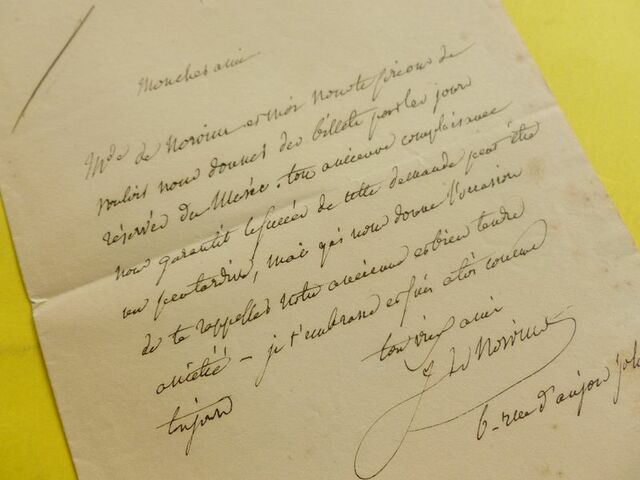 Mon cher ami
Mde de Norvins et moi nous te prions de
vouloir nous donner des billets pour les jours
réservés du Musée. ton ancienne complaisance
nous garantit le succès de cette demande peut être
un peu tardive, mais qui nous donne l'occasion
de te rappeller notre ancienne et bien tendre
amitié — je t'embrasse et suis à toi comme
toujours
ton vieil ami
J. de Norvins
6. rue d'anjou